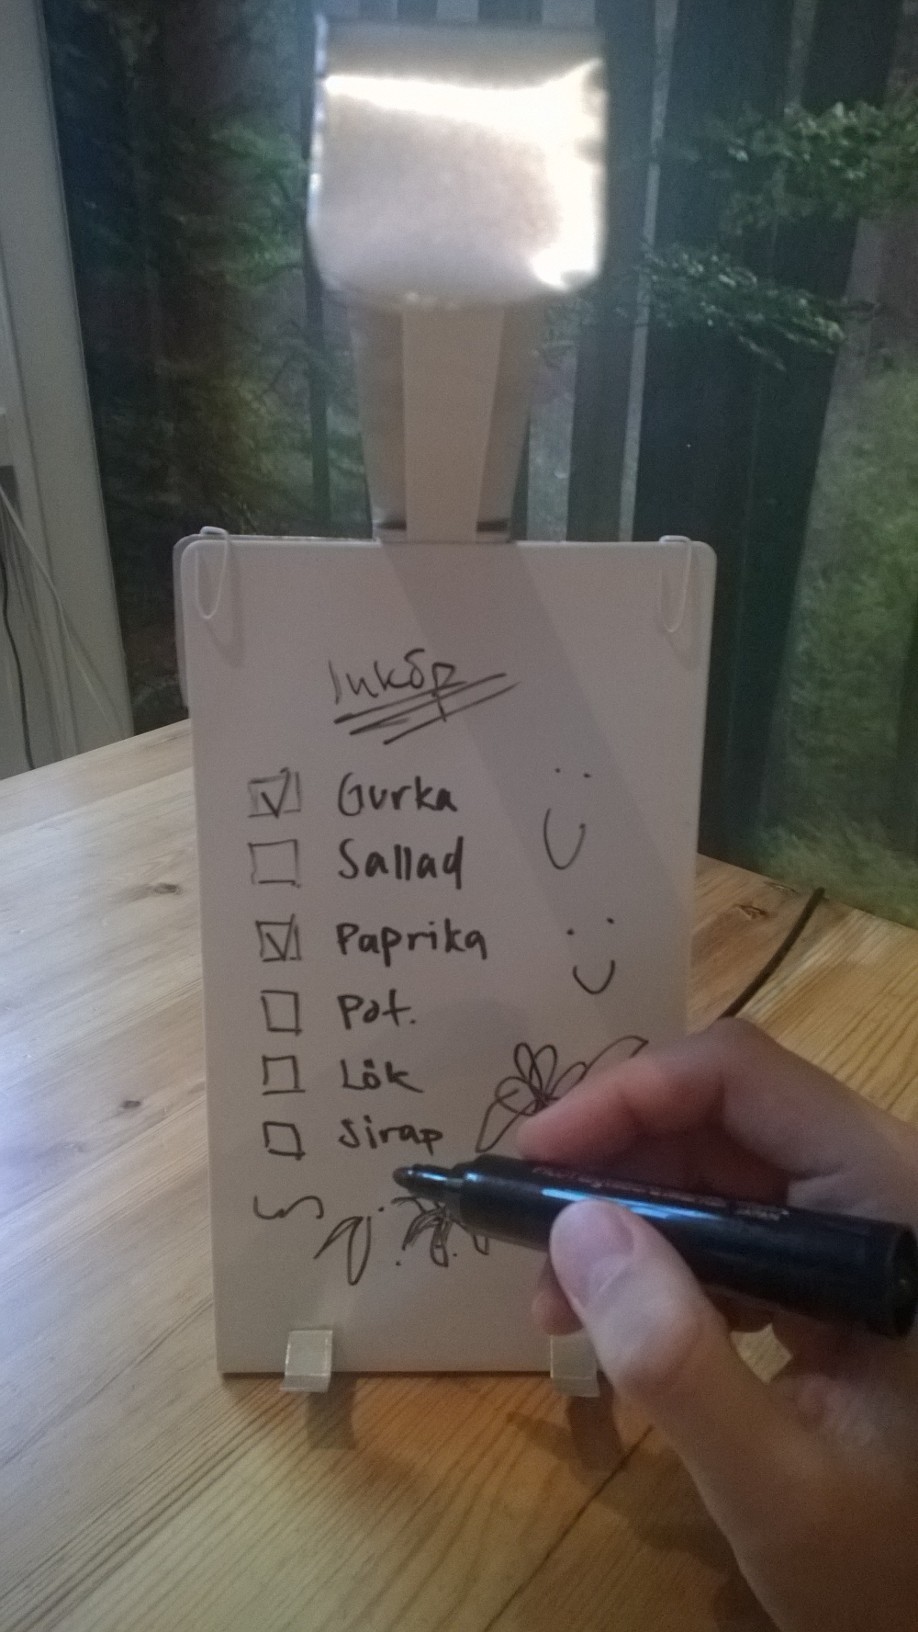 Inköp
Gurka
Sallad
Paprika
Pot.
Lök
Sirap